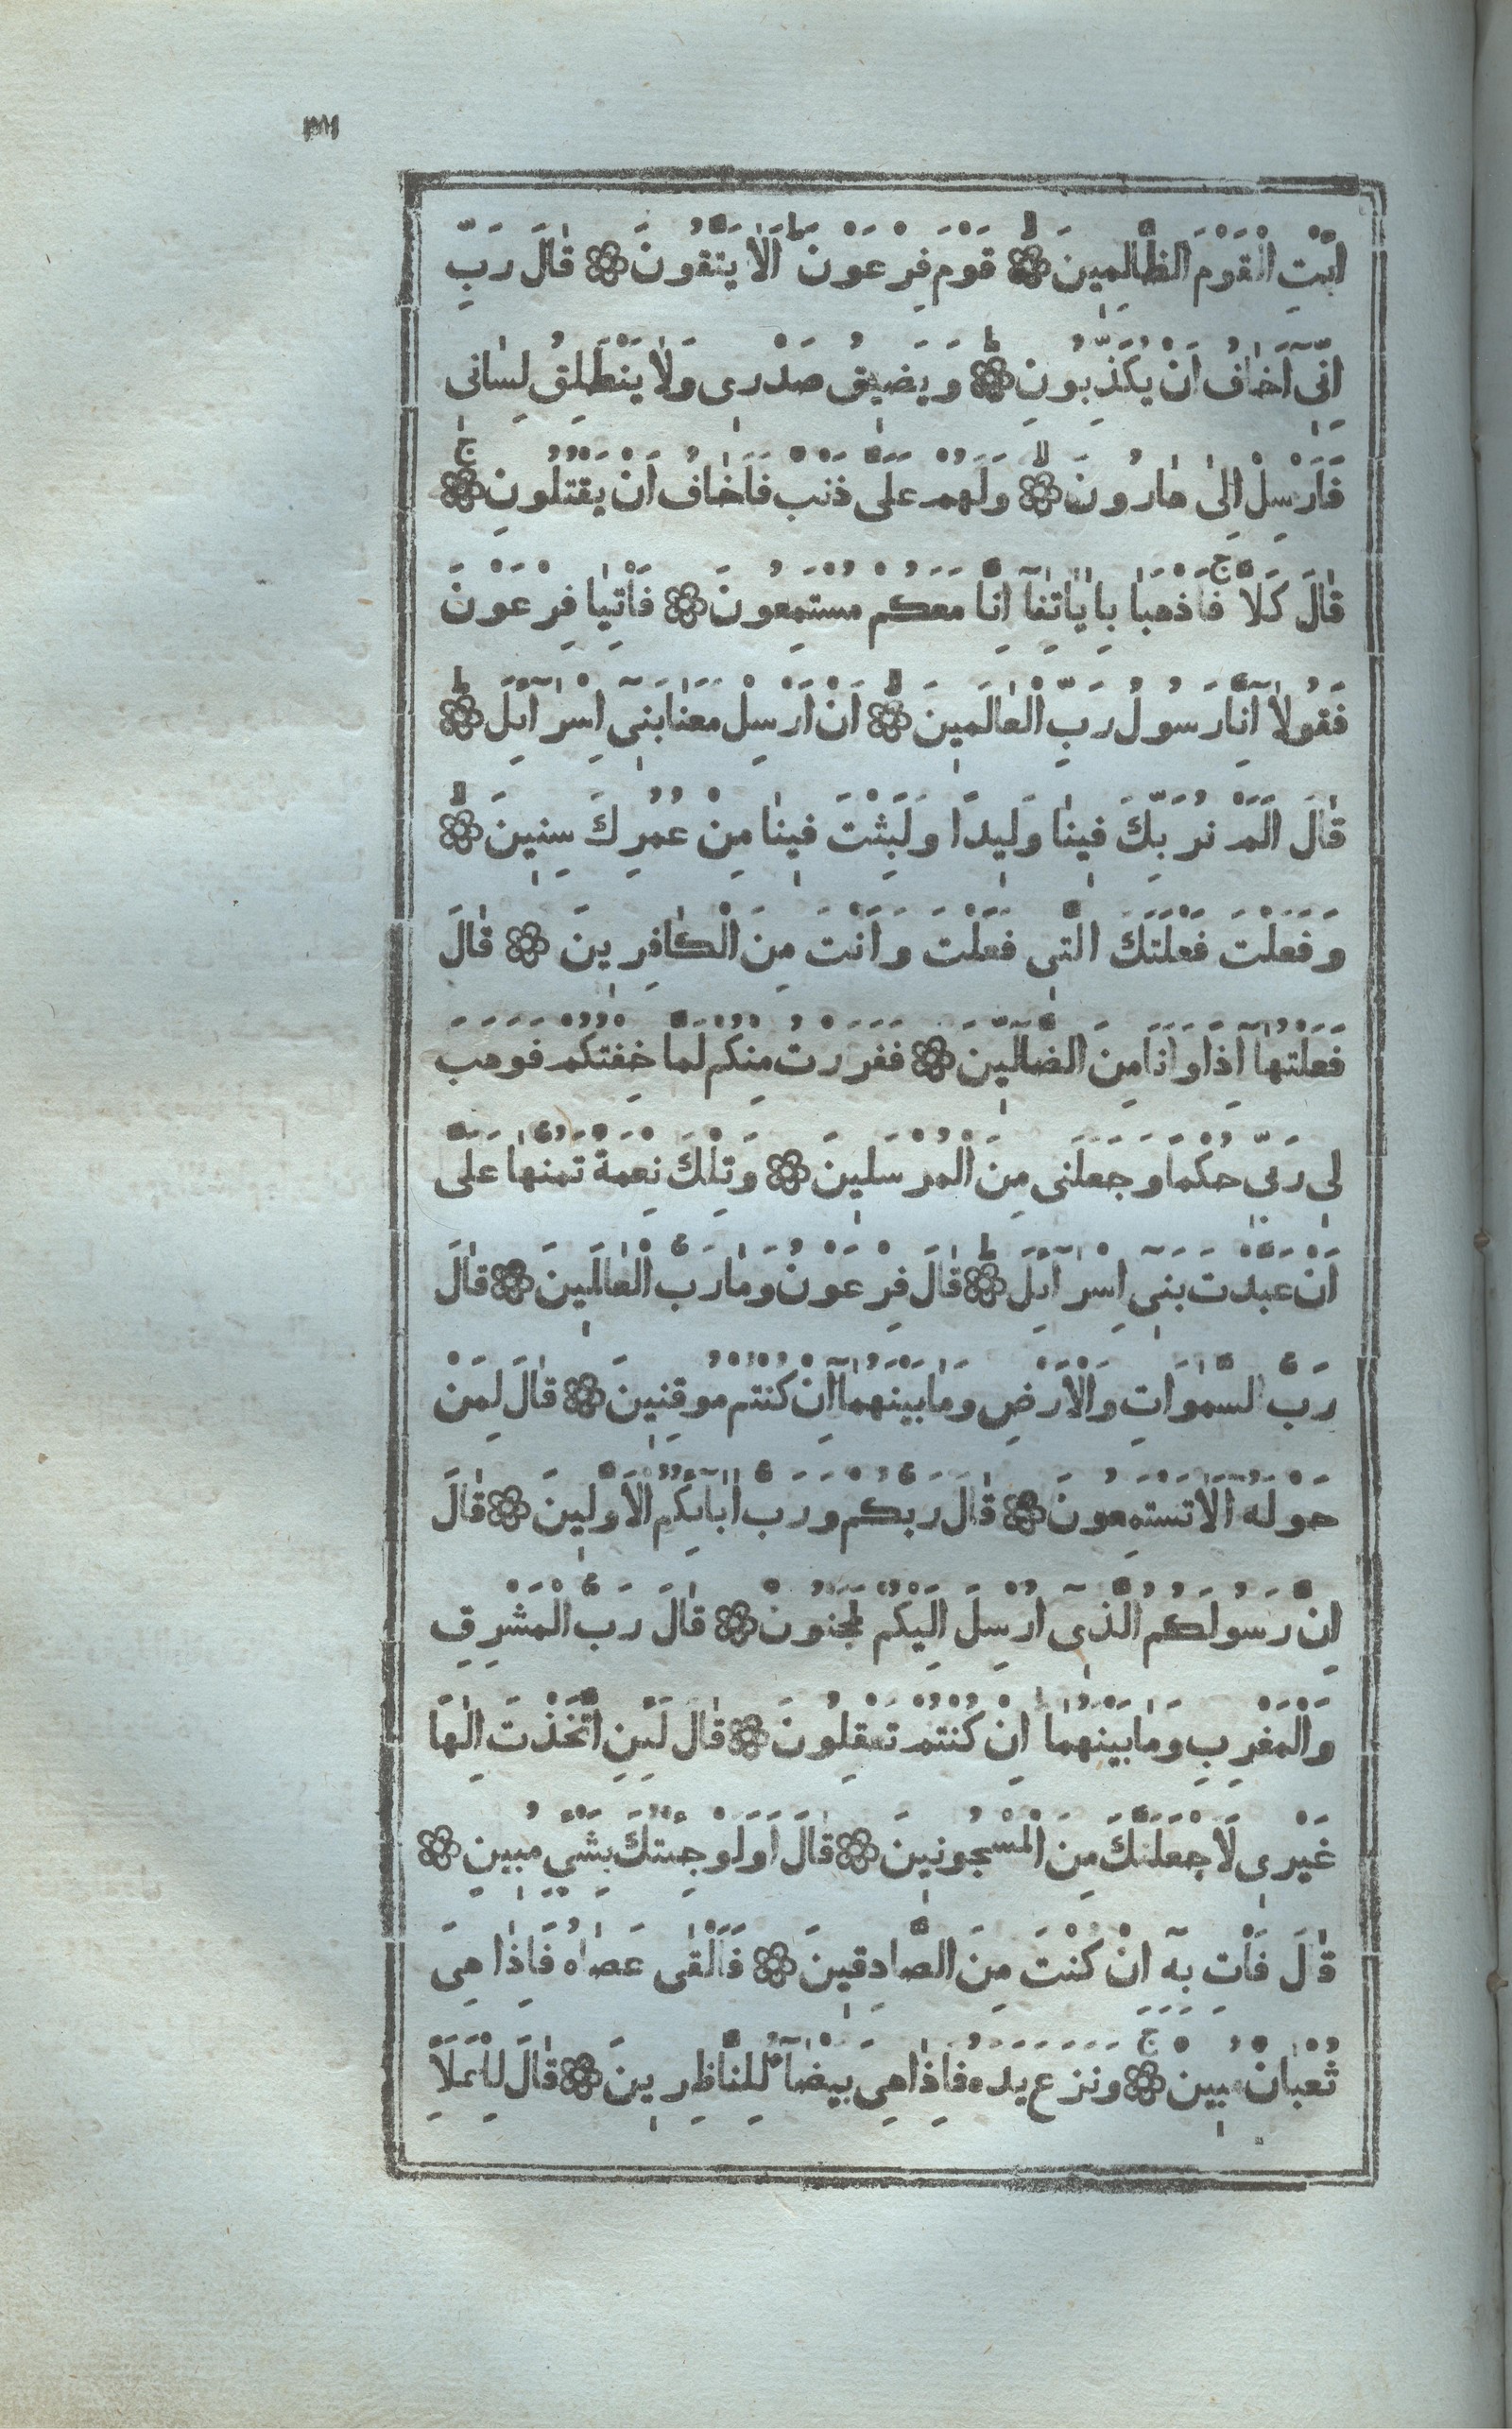 ٣٨١
ائْتِ الْقَوْمَ الظَّالِمِينَ ۙ قَوْمَ فِرْعَوْنَ ۚ اَلَا يَتَّقُونَ ۝ قَالَ رَبِّ
اِنِّىٓ اَخَافُ اَنْ يُكَذِّبُونِ ۝ؕ وَيَضِيقُ صَدْرِى وَلَا يَنْطَلِقُ لِسَانِى
فَاَرْسِلْ اِلٰى هَارُونَ ۝ۙ وَلَهُمْ عَلَىَّ ذَنْبٌ فَاَخَافُ اَنْ يَقْتُلُونِ ۝ۚ
قَالَ كَلَّا ۚ فَاذْهَبَا بِاٰيَاتِنَآ اِنَّا مَعَكُمْ مُسْتَمِعُونَ ۝ فَاْتِيَا فِرْعَوْنَ
فَقُولَآ اِنَّا رَسُولُ رَبِّ الْعَالَمِينَ ۝ۙ اَنْ اَرْسِلْ مَعَنَا بَنِىٓ اِسْرَآئِلَ ۝ؕ
قَالَ اَلَمْ نُرَبِّكَ فِينَا وَلِيدًا وَلَبِثْتَ فِينَا مِنْ عُمُرِكَ سِنِينَ ۝ۙ
وَفَعَلْتَ فَعْلَتَكَ الَّتِى فَعَلْتَ وَاَنْتَ مِنَ الْكَافِرِينَ ۝ قَالَ
فَعَلْتُهَآ اِذًا وَاَنَا مِنَ الضَّآلِّينَ ۝ فَفَرَرْتُ مِنْكُمْ لَمَّا خِفْتُكُمْ فَوَهَبَ
لِى رَبِّى حُكْمًا وَجَعَلَنِى مِنَ الْمُرْسَلِينَ ۝ وَتِلْكَ نِعْمَةٌ تَمُنُّهَا عَلَىَّ
اَنْ عَبَّدْتَ بَنِىٓ اِسْرَآئِلَ ۝ؕ قَالَ فِرْعَوْنُ وَمَا رَبُّ الْعَالَمِينَ ۝ قَالَ
رَبُّ السَّمٰوَاتِ وَالْاَرْضِ وَمَا بَيْنَهُمَآ اِنْ كُنْتُمْ مُوقِنِينَ ۝ قَالَ لِمَنْ
حَوْلَهُ اَلَا تَسْتَمِعُونَ ۝ قَالَ رَبُّكُمْ وَرَبُّ اٰبَآئِكُمُ الْاَوَّلِينَ ۝ قَالَ
اِنَّ رَسُولَكُمُ الَّذِىٓ اُرْسِلَ اِلَيْكُمْ لَمَجْنُونٌ ۝ قَالَ رَبُّ الْمَشْرِقِ
وَالْمَغْرِبِ وَمَا بَيْنَهُمَا اِنْ كُنْتُمْ تَعْقِلُونَ ۝ قَالَ لَئِنِ اتَّخَذْتَ اِلٰهًا
غَيْرِى لَاَجْعَلَنَّكَ مِنَ الْمَسْجُونِينَ ۝ قَالَ اَوَلَوْ جِئْتُكَ بِشَىْءٍ مُبِينٍ ۝
قَالَ فَاْتِ بِهٓ اِنْ كُنْتَ مِنَ الصَّادِقِينَ ۝ فَاَلْقٰى عَصَاهُ فَاِذَا هِىَ
ثُعْبَانٌ مُبِينٌ ۝ۚ وَنَزَعَ يَدَهُ فَاِذَا هِىَ بَيْضَآءُ لِلنَّاظِرِينَ ۝ قَالَ لِلْمَلَاِ